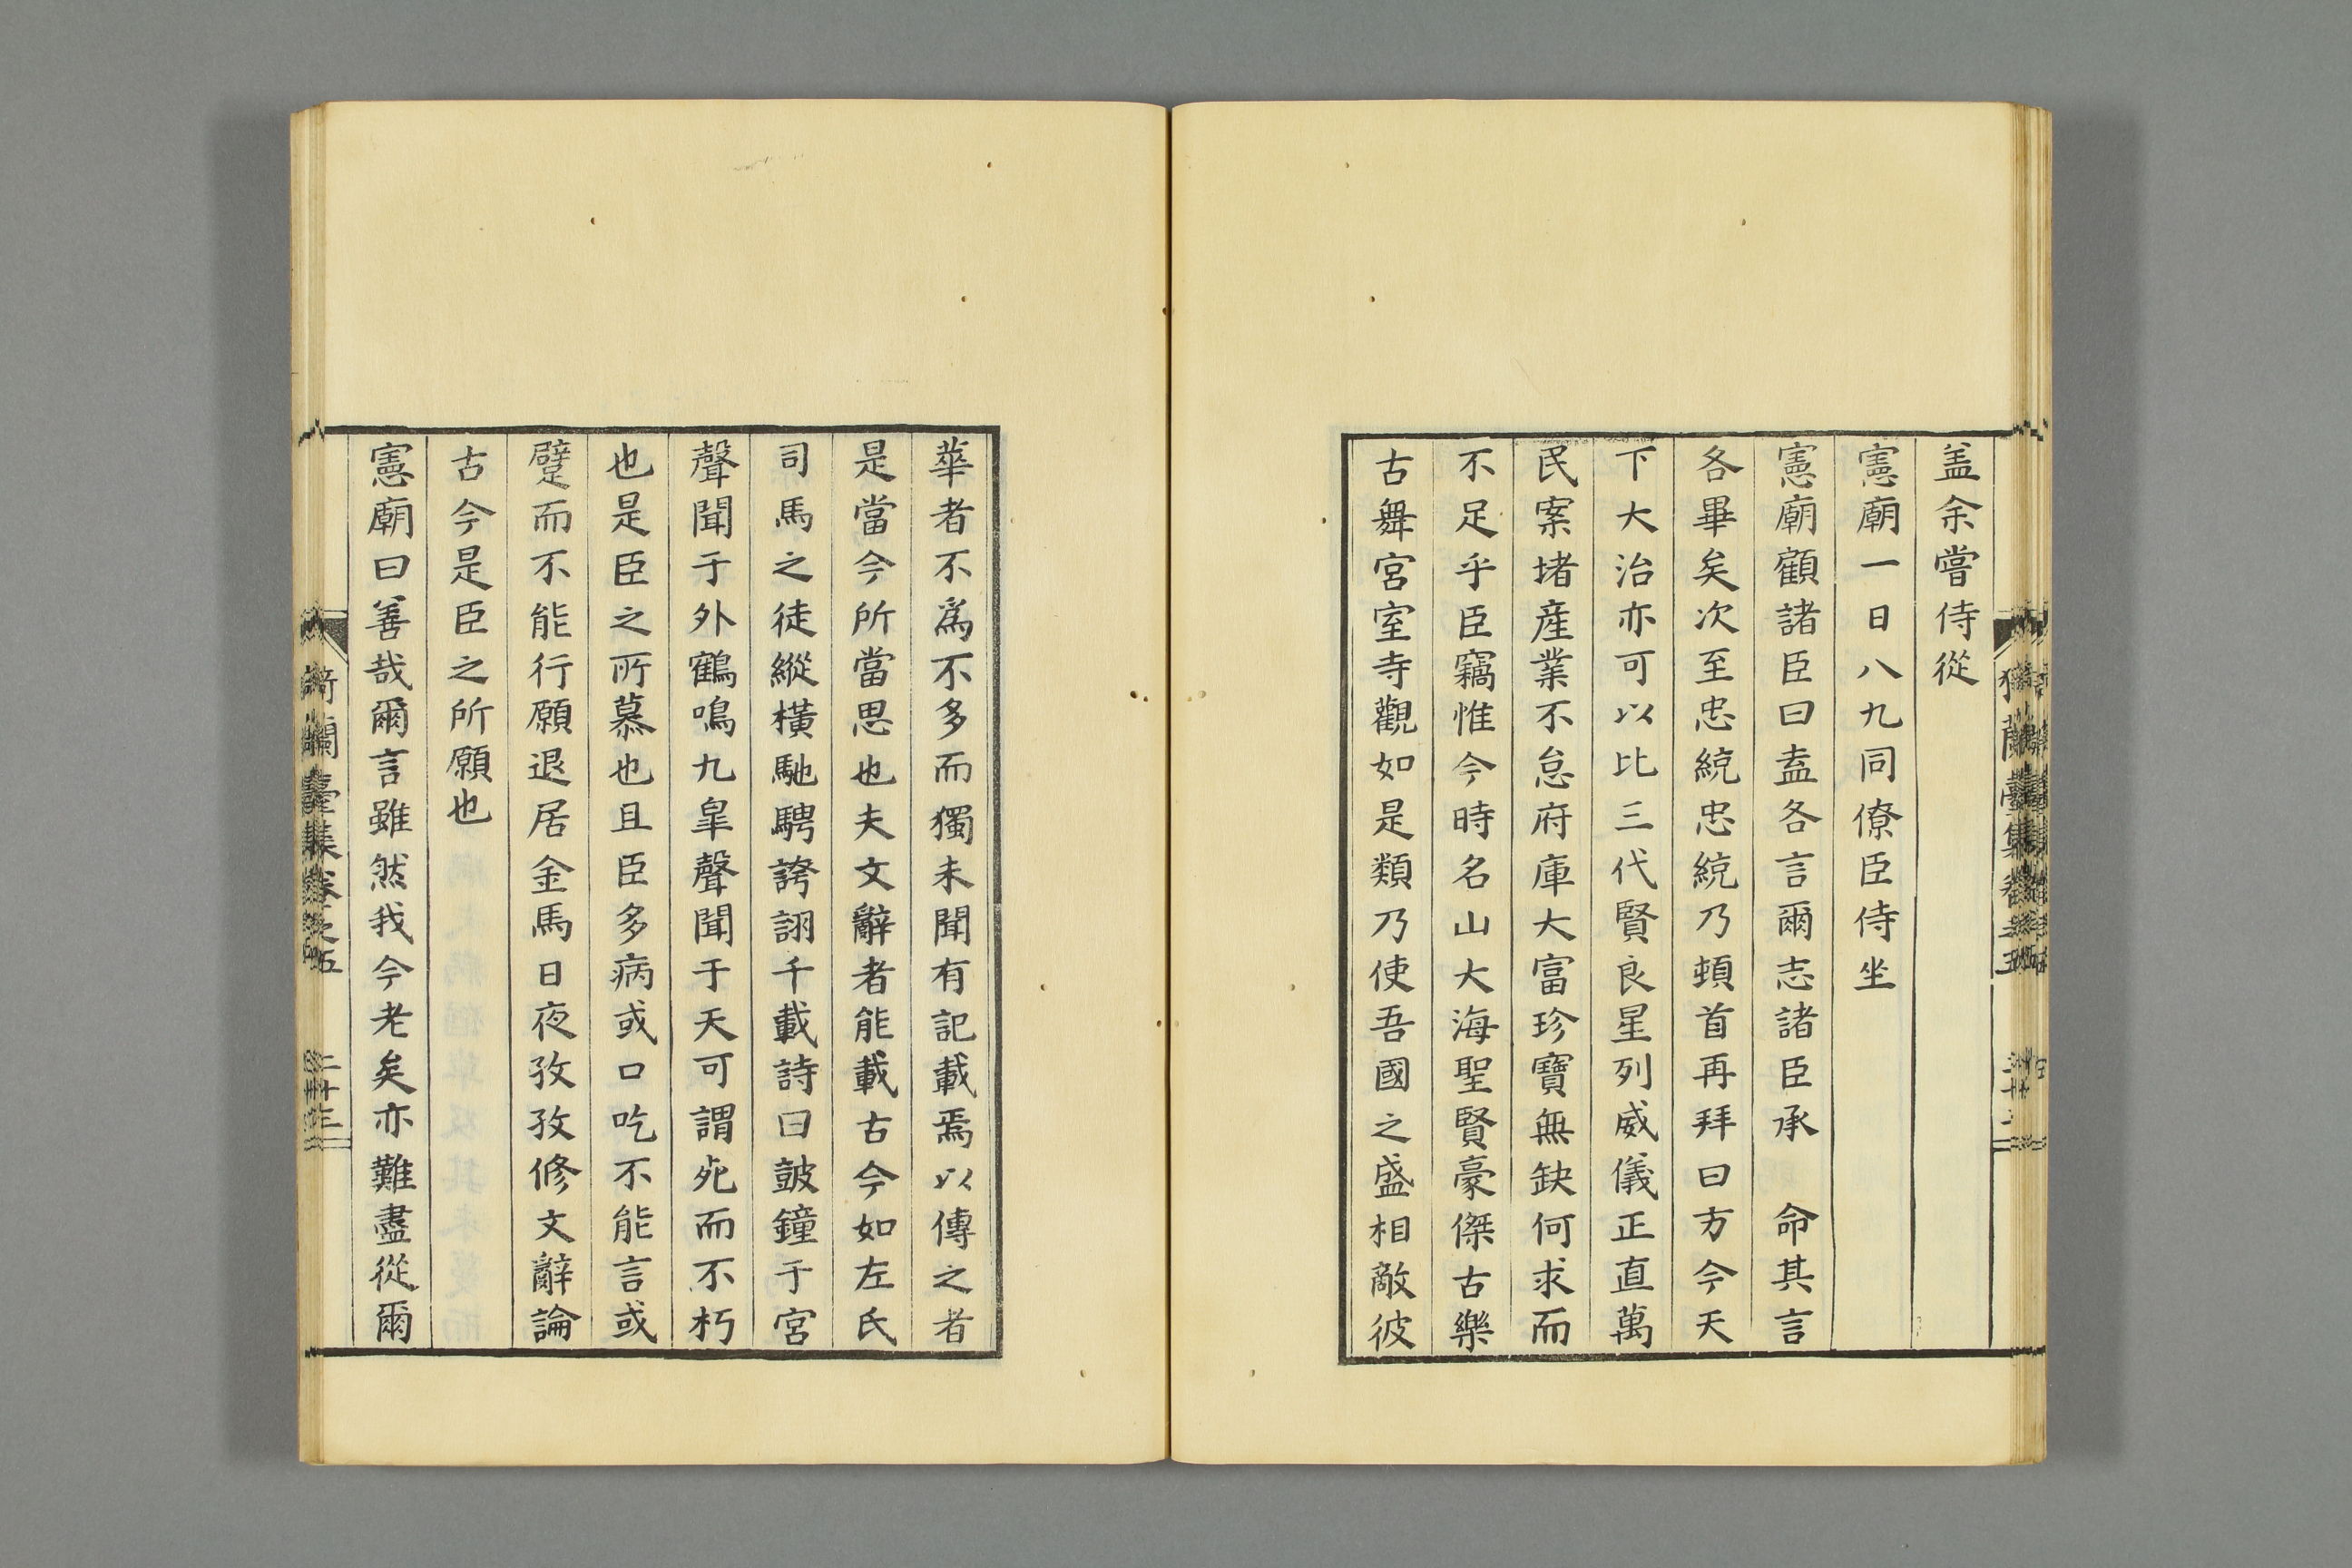 盖余嘗侍從
憲廟一日八九同僚臣侍坐
憲廟顧諸臣曰盍各言爾志諸臣承　命其言
各畢矣次至忠統忠統乃頓首再拜曰方今天
下大治亦可以比三代賢良星列威儀正直萬
民案堵産業不怠府庫大富珍寶無缺何求而
不足乎臣竊惟今時名山大海聖賢豪傑古樂
古舞宮室寺觀如是類乃使吾國之盛相敵彼
華者不爲不多而獨未聞有記載焉以傳之者
是當今所當思也夫文辭者能載古今如左氏
司馬之徒縱橫馳騁誇詡千載詩曰皷鐘于宮
聲聞于外鶴鳴九皐聲聞于天可謂死而不朽
也是臣之所慕也且臣多病或口吃不能言或
躄而不能行願退居金馬日夜孜孜修文辭論
古今是臣之所願也
憲廟曰善哉爾言雖然我今老矣亦難盡從爾